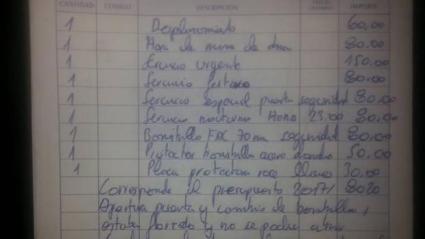 CANTIDAD CODIGO DESCRIPCIÓN IMPORTE
1 Desplazamiento 60,00
1 Mano de obra 80.00
1 Servicio urgente 150.00
1 Servicio festivo 80.00
1 Servicio especial puerta seguridad 80.00
1 Servicio nocturno Hora 23.00 80,00
1 Bombillo FAC 70mm seguridad 80.00
1 Protector bombillo acero 50.00
1 Placa protectora 30.00
Corresponde al presupuesto 2017/ 8020
Apertura puerta y cambio de bombillo,
estaba forzado y no se podia abrir